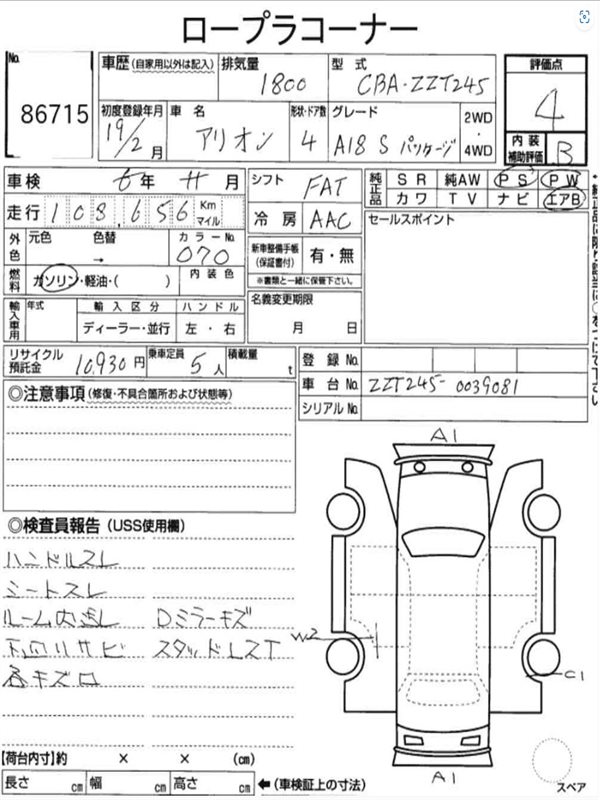 ロープラコーナー
No.
86715
車歴(自家用以外は記入)
排気量
1800
型 式
CBA-ZZT245
評価点
4
初度登録年月
19/2月
車 名
アリオン
形状・ドア数
4
グレード
A18 S パッケージ
2WD
・
4WD
内 装
補助評価
B
車検
年 月
シフト
FAT
純正品
SR 純AW PS PW
カワ TV ナビ エアB
走行
108,656
Km
マイル
冷 房
AAC
セールスポイント
外色
元色 色替
→
カラーNo.
070
新車整備手帳
(保証書付)
有・無
※書類と一緒に保管下さい。
燃料
ガソリン・軽油・( )
内 装 色
名義変更期限
月 日
輸入車用
年式
輸 入 区 分
ディーラー・並行
ハ ン ド ル
左 ・ 右
リサイクル
預託金
10,930円
乗車定員
5人
積載量
t
登 録 No.
車 台 No.
ZZT245-0039081
シリアル No.
◎注意事項(修復・不具合箇所および状態等)
◎検査員報告(USS使用欄)
ハンドルスレ
シートスレ
ルーム内汚レ Dミラーキズ
下回りサビ スタッドレスT
各キズ凹
A1
W2
C1
A1
スペア
【荷台内寸】約 × × (cm)
長さ cm 幅 cm 高さ cm
←(車検証上の寸法)